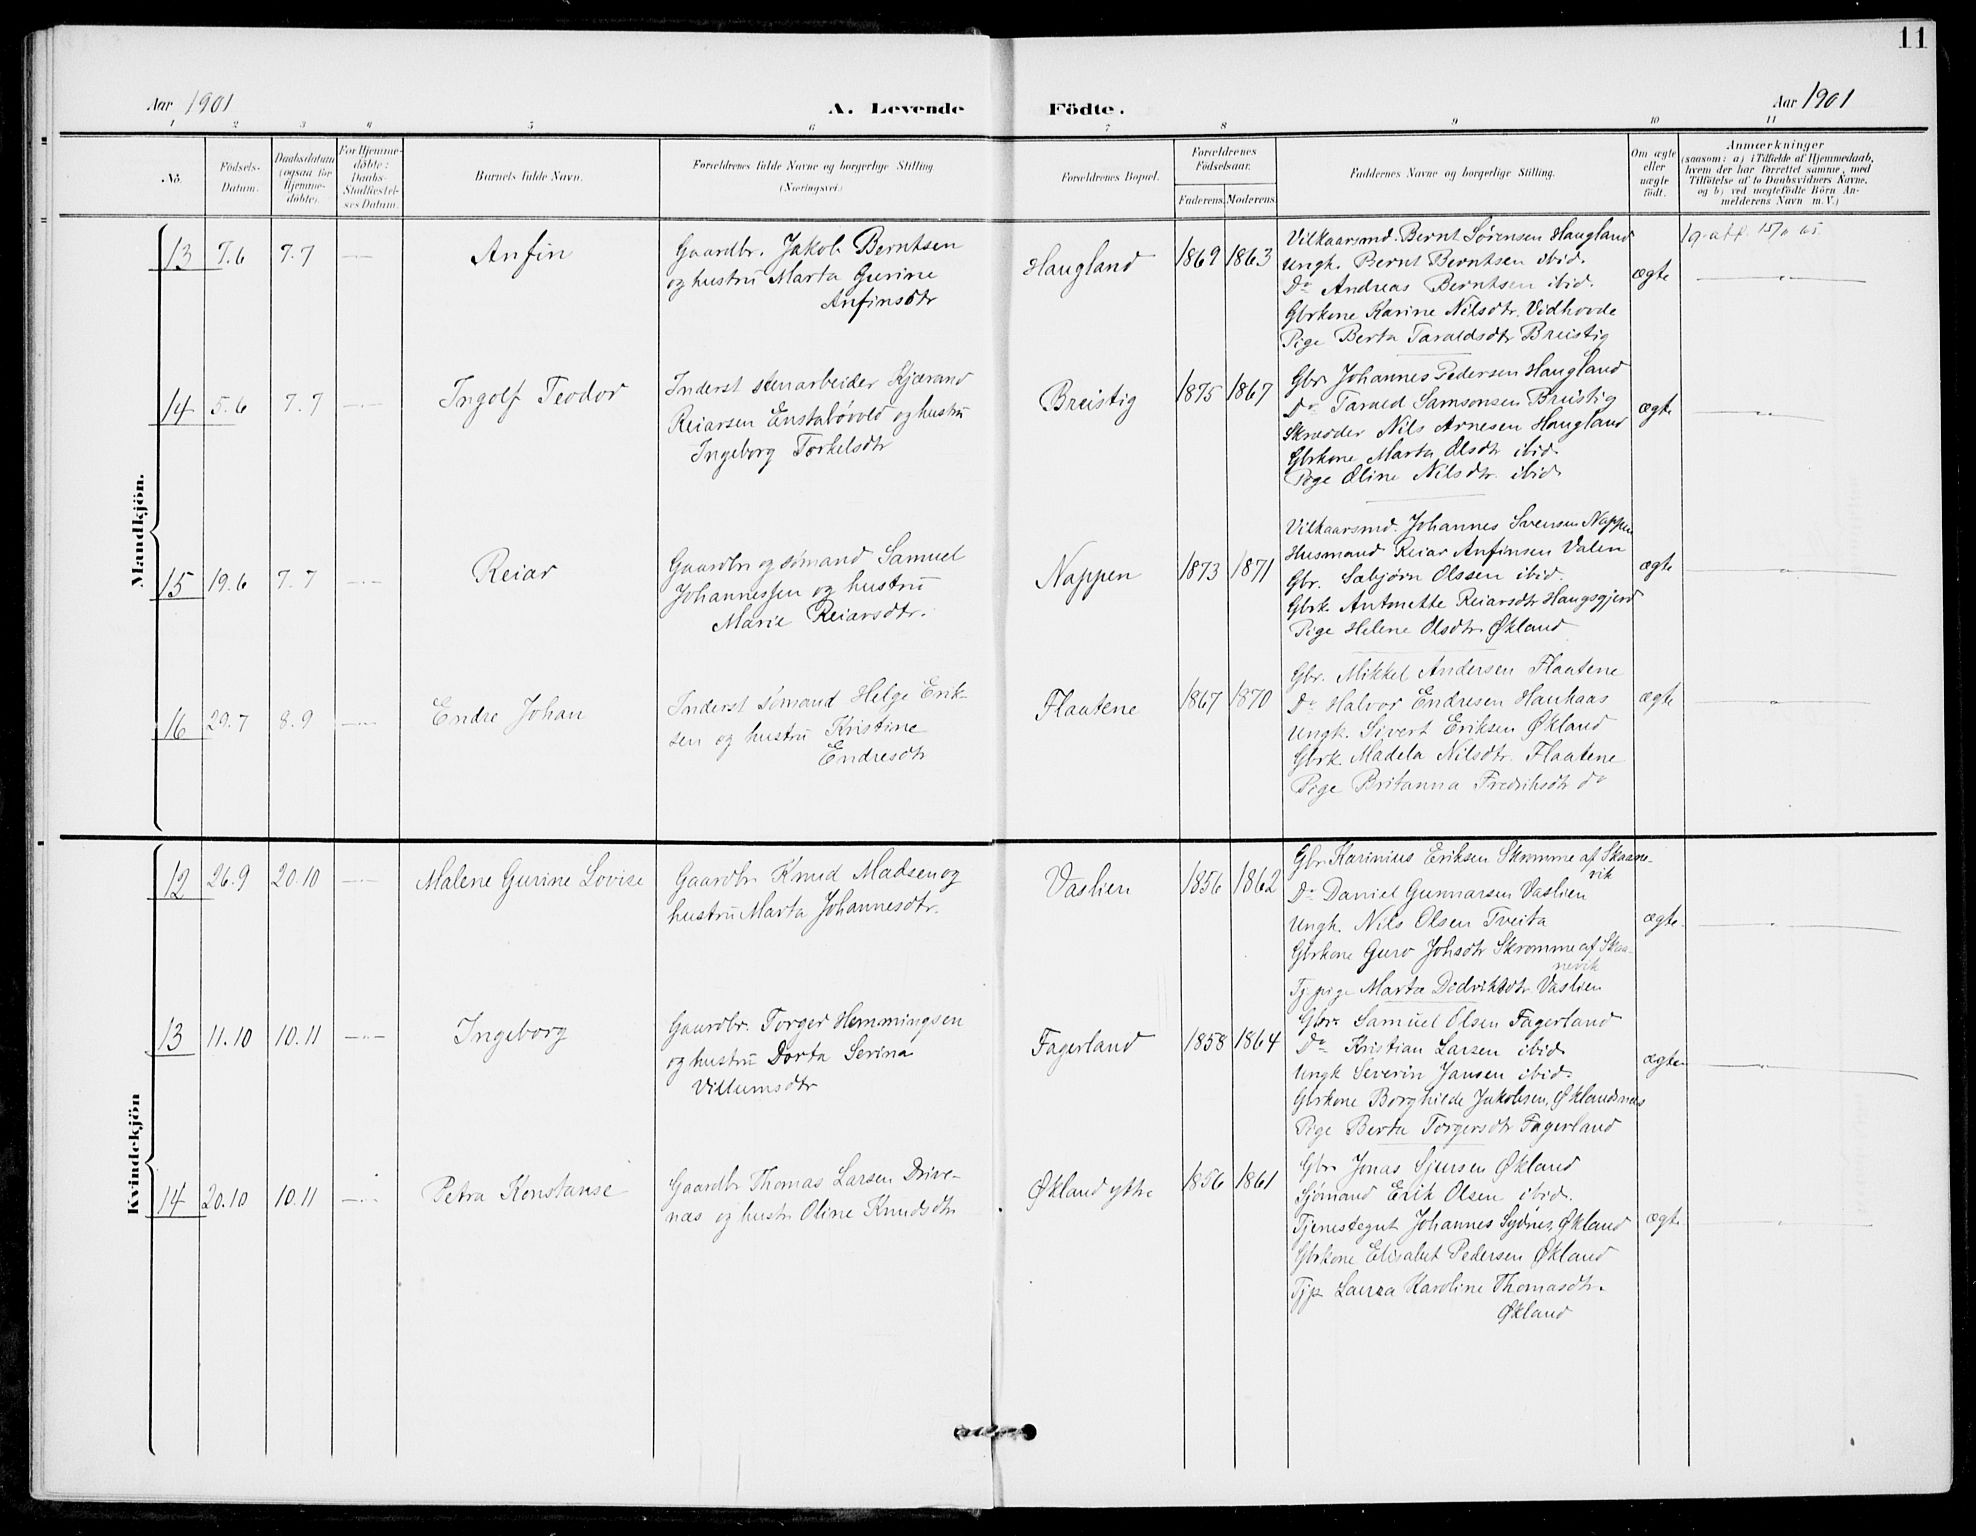 11
Aar 1901
A. Levende Födte.
Aar 1901
1 2 3 4 5 6 7 8 9 10 11
No.
Födsels-
Datum.
Daabsdatum
(ogsaa for
Hjemme-
döbte).
For Hjemme-
döbte:
Daabs-
Stadfæstel-
ses Datum.
Barnets fulde Navn.
Forældrenes fulde Navne og borgerlige Stilling
(Næringsvei.)
Forældrenes Bopæl.
Forældrenes
Födselsaar.
Faderens. Moderens.
Faddernes Navne og borgerlige Stilling.
Om ægte
eller
uægte
födt.
Anmærkninger
(saasom: a) i Tilfælde af Hjemmedaab,
hvem der har forrettet samme, med
Tilföielse af to Daabsvidners Navne,
og b) ved uægtefödte Börn An-
melderens Navn m. V.)
Mandkjön.
13 7.6 7.7 —"— Anfin
Gaardbr. Jakob Berntsen
og hustru Marta Gurine
Anfinsdtr
Haugland 1869 1863
Vilkaarsmd. Bernt Sørensen Haugland
Ungk. Bernt Berntsen ibid.
Do Andreas Berntsen ibid.
Gbrkone Karine Nilsdtr. Vidhovde
Pige Berta Taraldsdtr Breistig
ægte
—"—
14 5.6 7.7 —"— Ingolf Teodor
Inderst stenarbeider Kjærand
Reiarsen Enstabøvold og hustru
Ingeborg Torkelsdtr
Breistig 1875 1867
Gbr. Johannes Pedersen Haugland
Do Tarald Samsonsen Breistig
Skrædder Nils Arnesen Haugland
Gbrkone Marta Olsdtr ibid.
Pige Oline Nilsdtr. ibid.
ægte —"—
15 19.6 7.7 —"— Reiar
Gaardbr og sømand Samuel
Johannessen og hustru
Marie Reiarsdtr.
Nappen 1873 1871
Vilkaarsmd. Johannes Svensen Nappen
Husmand Reiar Anfinsen Valen
Gbr. Sæbjørn Olssen ibid.
Gbrk. Antonette Reiarsdtr Haugsgjerd
Pige Helene Olsdtr. Økland
ægte —"—
16 29.7 8.9 —"— Endre Johan
Inderst sømand Helge Erik-
sen og hustru Kristine
Endresdtr
Flaatene 1867 1870
Gbr. Mikkel Andersen Flaatene
Do Halvor Endresen Haukaas
Ungk. Sivert Eriksen Økland
Gbrk. Madela Nilsdtr. Flaatene
Pige Britanna Fredriksdtr do
ægte —"—
Kvindekjön
12 26.9 20.10 —"— Malene Gurine Lovise
Gaardbr. Knud Madsen og
hustru Marta Johannesdtr.
Vaslien 1856 1862
Gbr. Karinius Eriksen Skromme af Skaane-
vik
Do Daniel Gunnarsen Vaslien
Ungk. Nils Olsen Tveita
Gbrkone Guro Johsdtr Skromme af Skaa-
nevik
Tj.pige Marta Didriksdtr Vaslien
ægte —"—
13 11.10 10.11 —"— Ingeborg
Gaardbr. Torger Hemmingsen
og hustru Dorta Serina
Villumsdtr
Fagerland 1858 1864
Gbr. Samuel Olsen Fagerland
Do Kristian Larsen ibid.
Ungk Severin Jansen ibid.
Gbrkone Borghilde Jakobsen, Øklandsnæs
Pige Berta Torgersdtr Fagerland
ægte —"—
14 20.10 10.11 —"— Petra Konstanse
Gaardbr Thomas Larsen Drive-
næs og hustr. Oline Knudsdtr
Økland ytre 1856 1861
Gbr. Jonas Sjursen Økland
Sjømand Erik Olsen ibid.
Tjenestegut Johannes Sydnes, Økland
Gbrkone Elisabet Pedersen Økland
Tjp Laura Karoline Thomasdtr.
Økland
ægte —"—